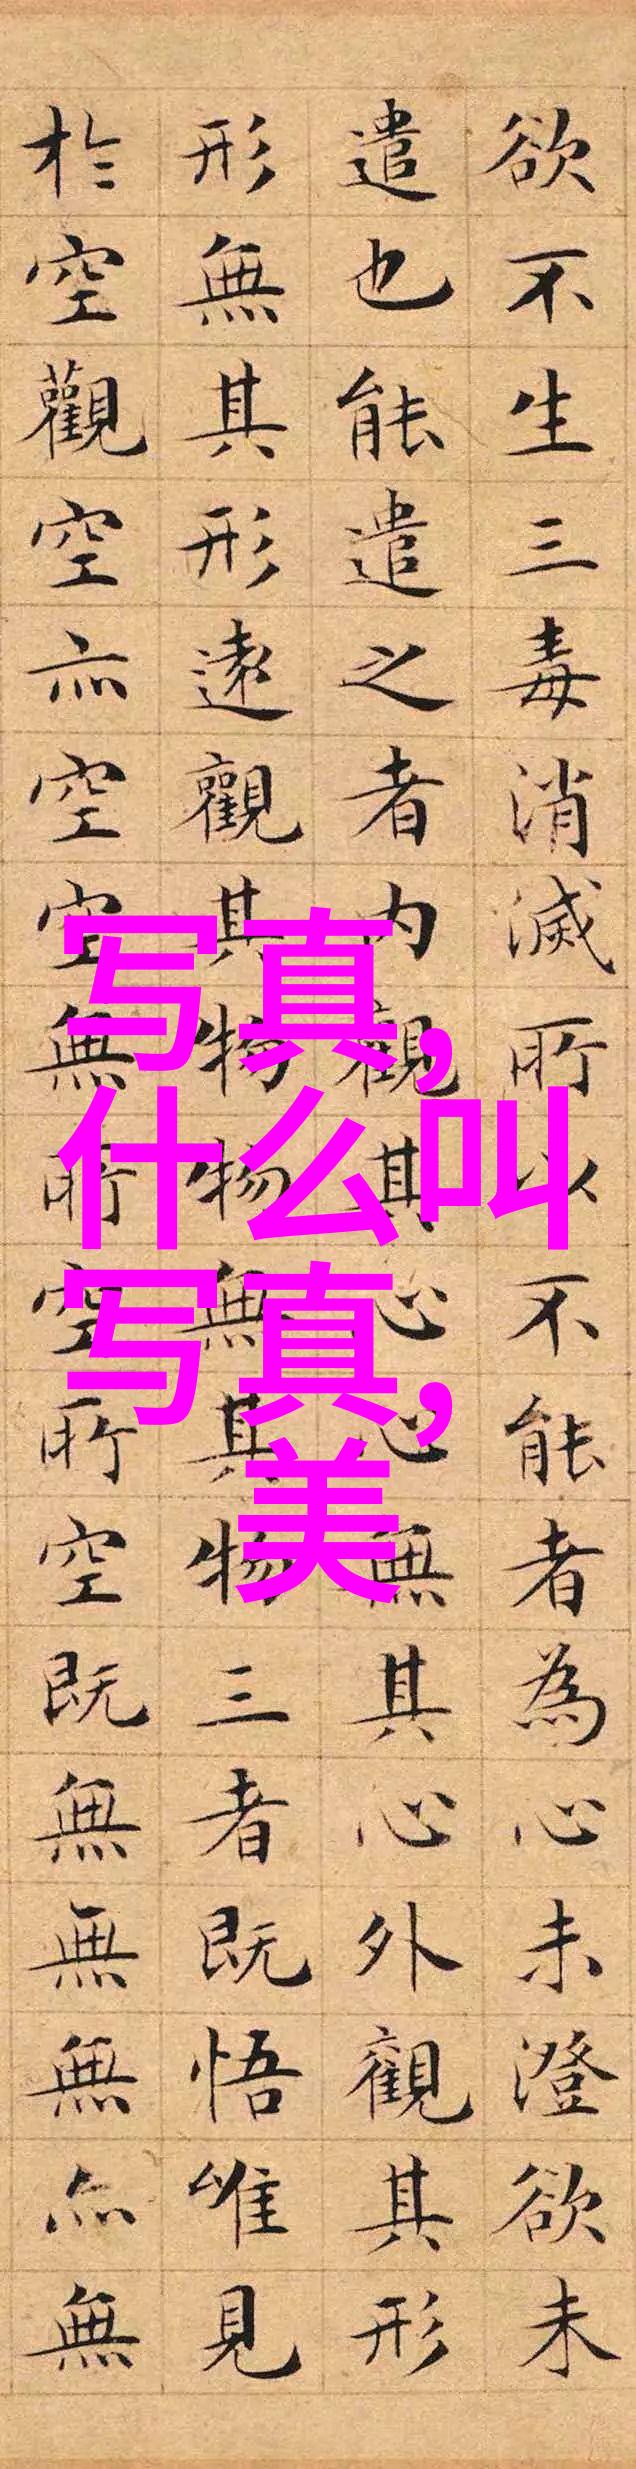 欲不生三毒消滅所以不能者為心未澄欲未
遣也能遣之者内觀其心心無其心外觀其形
形無其形遠觀其物物無其物三者既悟唯見
於空觀空亦空空無所空所空既無無無亦無
写真,
什么叫
写真,
美